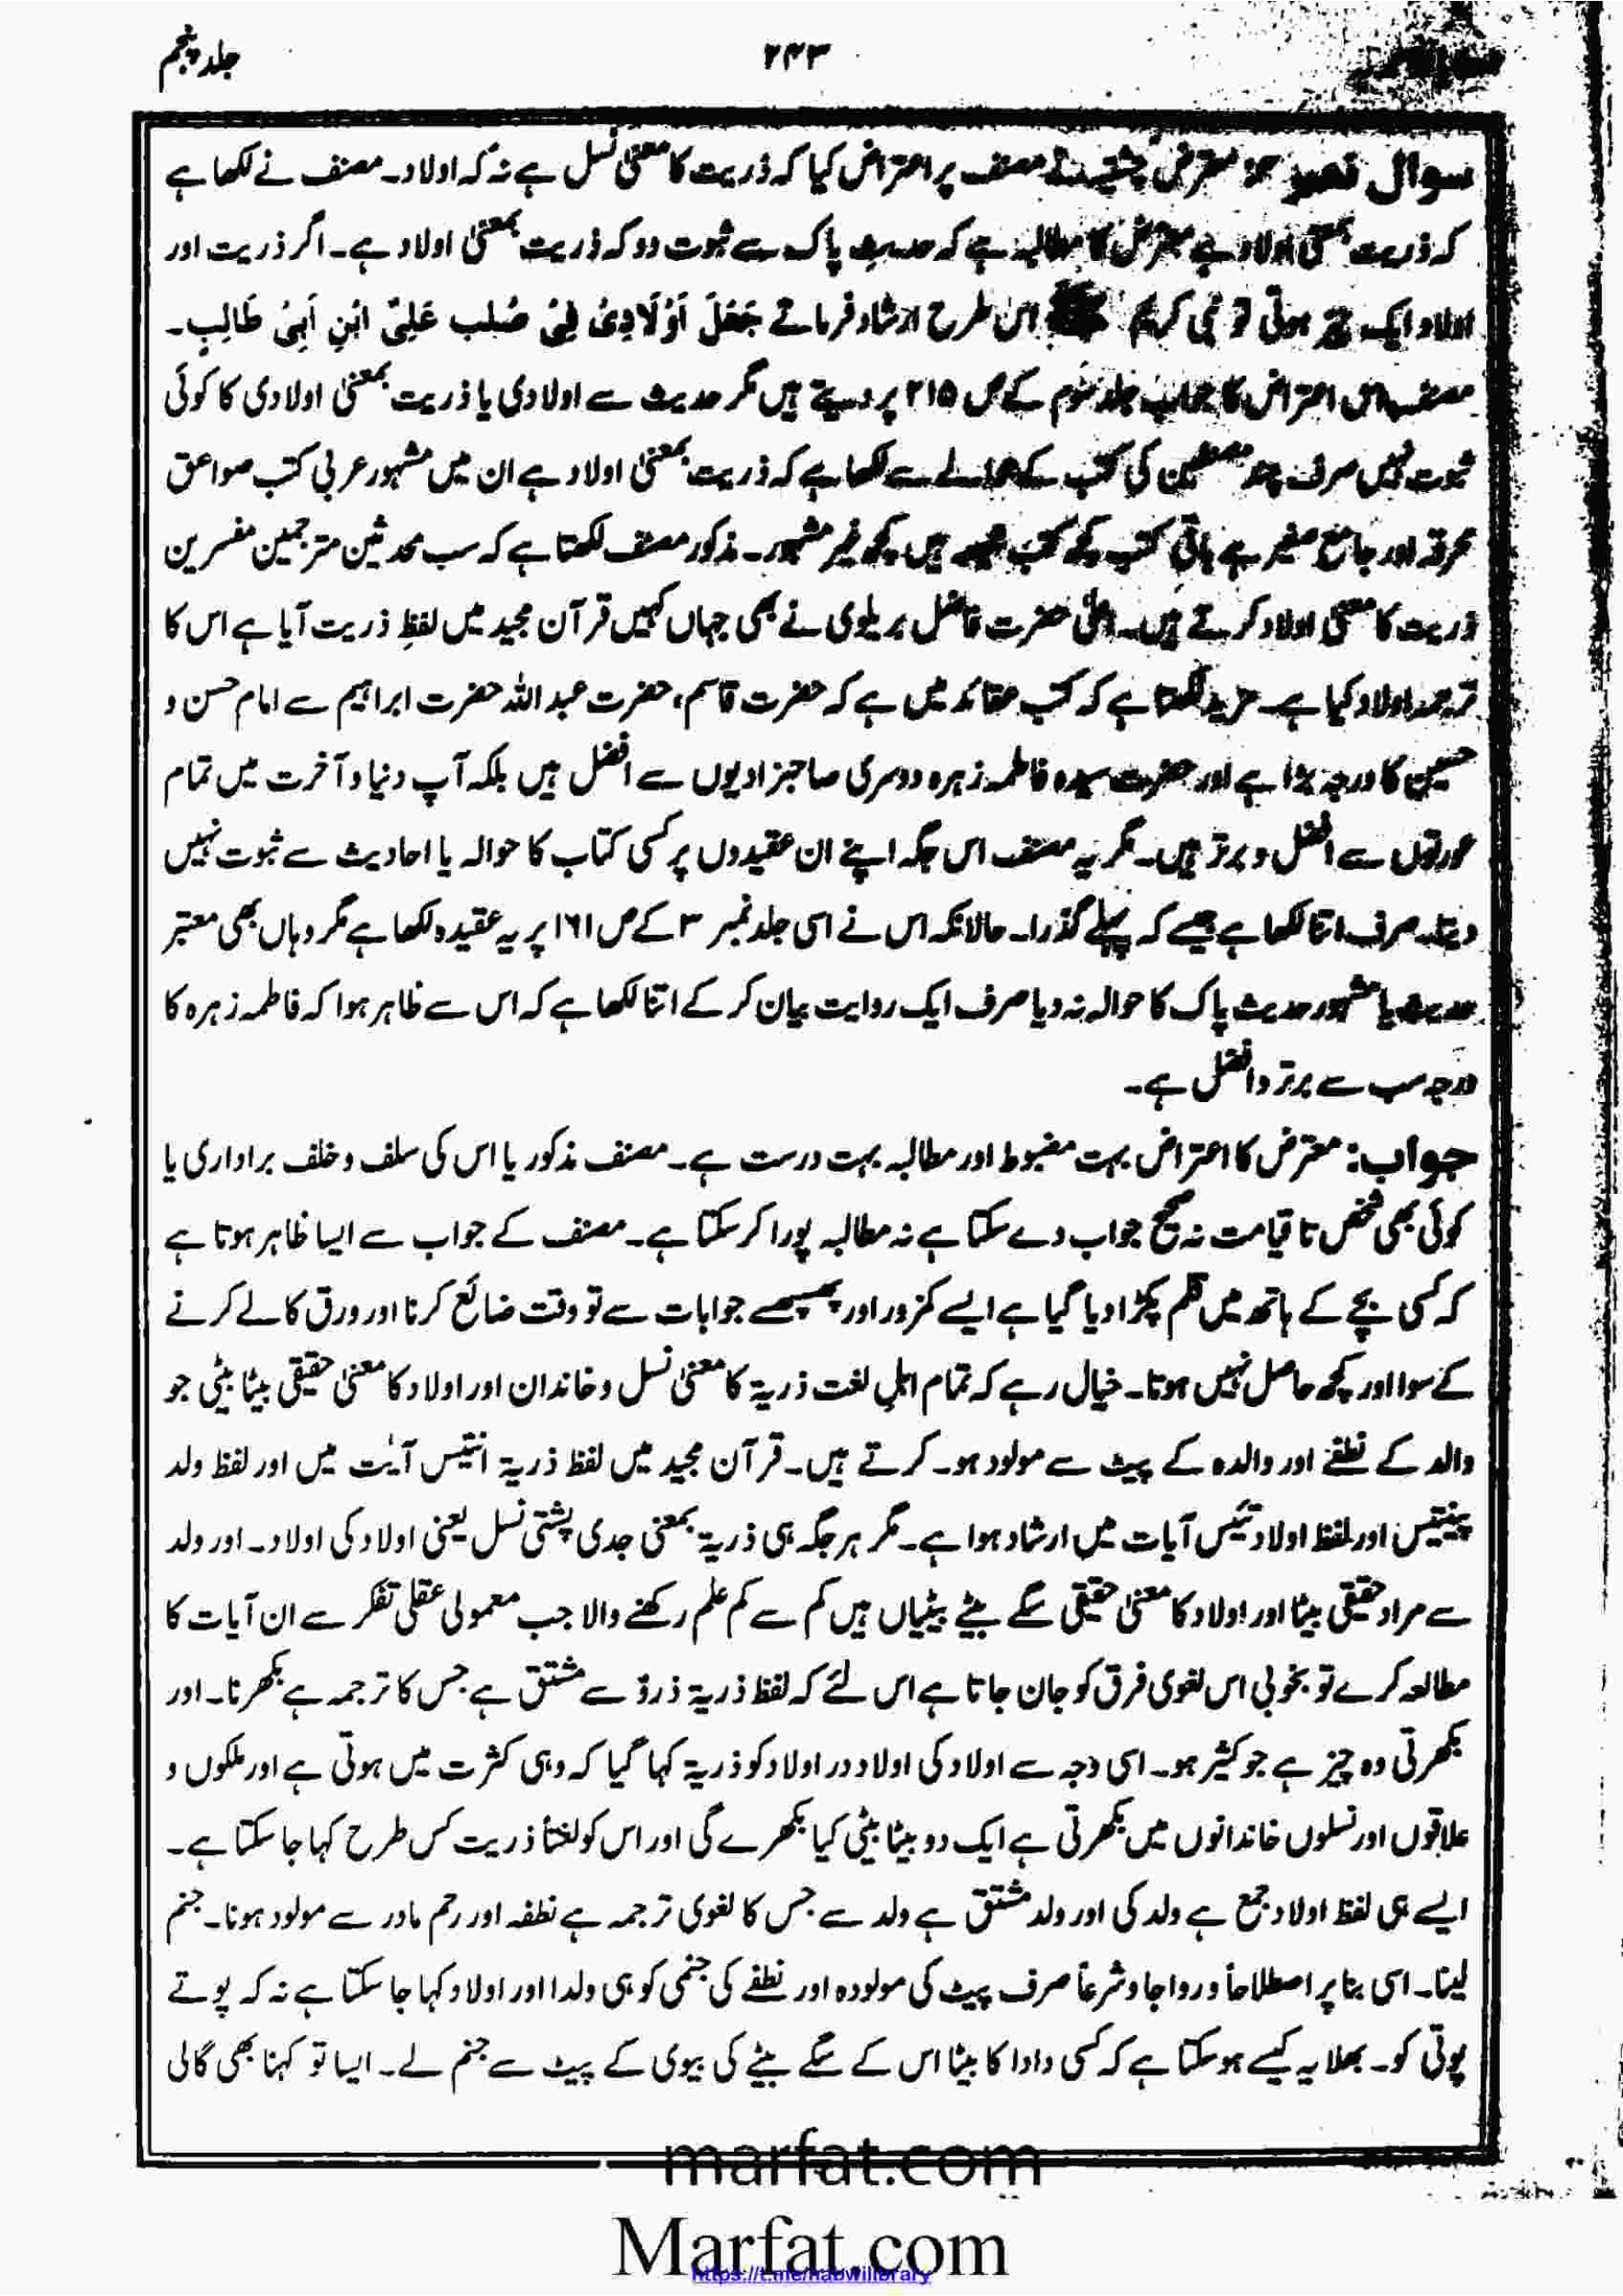 جلد پنجم
۲۴۳
سوال نمبر معترض چشتیہ نے مصنف پر اعتراض کیا کہ ذریت کا معنیٰ نسل ہے نہ کہ اولاد۔ مصنف نے لکھا ہے
کہ ذریت بمعنیٰ اولاد ہے معترض کا مطالبہ ہے کہ حدیث پاک سے ثبوت دو کہ ذریت بمعنیٰ اولاد ہے۔ اگر ذریت اور
اولاد ایک چیز ہوتی تو نبی کریم اس طرح ارشاد فرماتے جَعَلَ اَوْلَادِیْ فِیْ صُلب عَلِیِّ ابْنِ اَبِیْ طَالِبٍ۔
مصنف اس اعتراض کا جواب جلد سوم کے ص ۲۱۵ پر دیتے ہیں مگر حدیث سے اولادی یا ذریت بمعنیٰ اولادی کا کوئی
ثبوت نہیں صرف چند مصنفین کی کتب کے حوالے سے لکھا ہے کہ ذریت بمعنیٰ اولاد ہے ان میں مشہور عربی کتب صواعق
محرقہ اور جامع صغیر ہے باقی کتب کچھ کتب ہیں کچھ غیر مشہور۔ مذکور مصنف لکھتا ہے کہ سب محدثین مترجمین مفسرین
ذریت کا معنیٰ اولاد کرتے ہیں۔ اعلیٰ حضرت فاضل بریلوی نے بھی جہاں کہیں قرآن مجید میں لفظِ ذریت آیا ہے اس کا
ترجمہ اولاد کیا ہے۔ مزید لکھتا ہے کہ کتب عقائد میں ہے کہ حضرت قاسم، حضرت عبد اللہ حضرت ابراہیم سے امام حسن و
حسین کا درجہ بڑا ہے اور حضرت سیدہ فاطمہ زہرہ دوسری صاحبزادیوں سے افضل ہیں بلکہ آپ دنیا و آخرت میں تمام
عورتوں سے افضل و برتر ہیں۔ مگر یہ مصنف اس جگہ اپنے ان عقیدوں پر کسی کتاب کا حوالہ یا احادیث سے ثبوت نہیں
دیتا۔ صرف اتنا لکھا ہے جیسے کہ پہلے گذرا۔ حالانکہ اس نے اسی جلد نمبر ۳ کے ص ۱۶۱ پر یہ عقیدہ لکھا ہے مگر وہاں بھی معتبر
حدیث یا مشہور حدیث پاک کا حوالہ نہ دیا صرف ایک روایت بیان کر کے اتنا لکھا ہے کہ اس سے ظاہر ہوا کہ فاطمہ زہرہ کا
درجہ سب سے برتر و افضل ہے۔
جواب: معترض کا اعتراض بہت مضبوط اور مطالبہ بہت درست ہے۔ مصنف مذکور یا اس کی سلف و خلف برادری یا
کوئی بھی شخص تا قیامت نہ صحیح جواب دے سکتا ہے نہ مطالبہ پورا کر سکتا ہے۔ مصنف کے جواب سے ایسا ظاہر ہوتا ہے
کہ کسی بچے کے ہاتھ میں قلم پکڑا دیا گیا ہے ایسے کمزور اور پھسپھسے جوابات سے تو وقت ضائع کرنا اور ورق کالے کرنے
کے سوا اور کچھ حاصل نہیں ہوتا۔ خیال رہے کہ تمام اہلِ لغت ذریۃ کا معنیٰ نسل و خاندان اور اولاد کا معنیٰ حقیقی بیٹا بیٹی جو
والد کے نطفے اور والدہ کے پیٹ سے مولود ہو۔ کرتے ہیں۔ قرآن مجید میں لفظ ذریۃ انتیس آیٰت میں اور لفظ ولد
پینتیس اور لفظ اولاد تئیس آیات میں ارشاد ہوا ہے۔ مگر ہر جگہ ہی ذریۃ بمعنی جدی پشتی نسل یعنی اولاد کی اولاد۔ اور ولد
سے مراد حقیقی بیٹا اور اولاد کا معنیٰ حقیقی سگے بیٹے بیٹیاں ہیں کم سے کم علم رکھنے والا جب معمولی عقلی تفکر سے ان آیات کا
مطالعہ کرے تو بخوبی اس لغوی فرق کو جان جاتا ہے اس لئے کہ لفظ ذریۃ ذرؤ سے مشتق ہے جس کا ترجمہ ہے بکھرنا۔ اور
بکھرتی وہ چیز ہے جو کثیر ہو۔ اسی وجہ سے اولاد کی اولاد در اولاد کو ذریۃ کہا گیا کہ وہی کثرت میں ہوتی ہے اور ملکوں و
علاقوں اور نسلوں خاندانوں میں بکھرتی ہے ایک دو بیٹا بیٹی کیا بکھرے گی اور اس کو لغتاً ذریت کس طرح کہا جا سکتا ہے۔
ایسے ہی لفظ اولاد جمع ہے ولد کی اور ولد مشتق ہے ولد سے جس کا لغوی ترجمہ ہے نطفہ اور رحم مادر سے مولود ہونا۔ جنم
لینا۔ اسی بنا پر اصطلاحاً و رواجا و شرعاً صرف پیٹ کی مولودہ اور نطفے کی جنمی کو ہی ولدا اور اولاد کہا جا سکتا ہے نہ کہ پوتے
پوتی کو۔ بھلا یہ کیسے ہو سکتا ہے کہ کسی دادا کا بیٹا اس کے سگے بیٹے کی بیوی کے پیٹ سے جنم لے۔ ایسا تو کہنا بھی گالی
marfat.com
Marfat.com
https://t.me/nabwilibrary